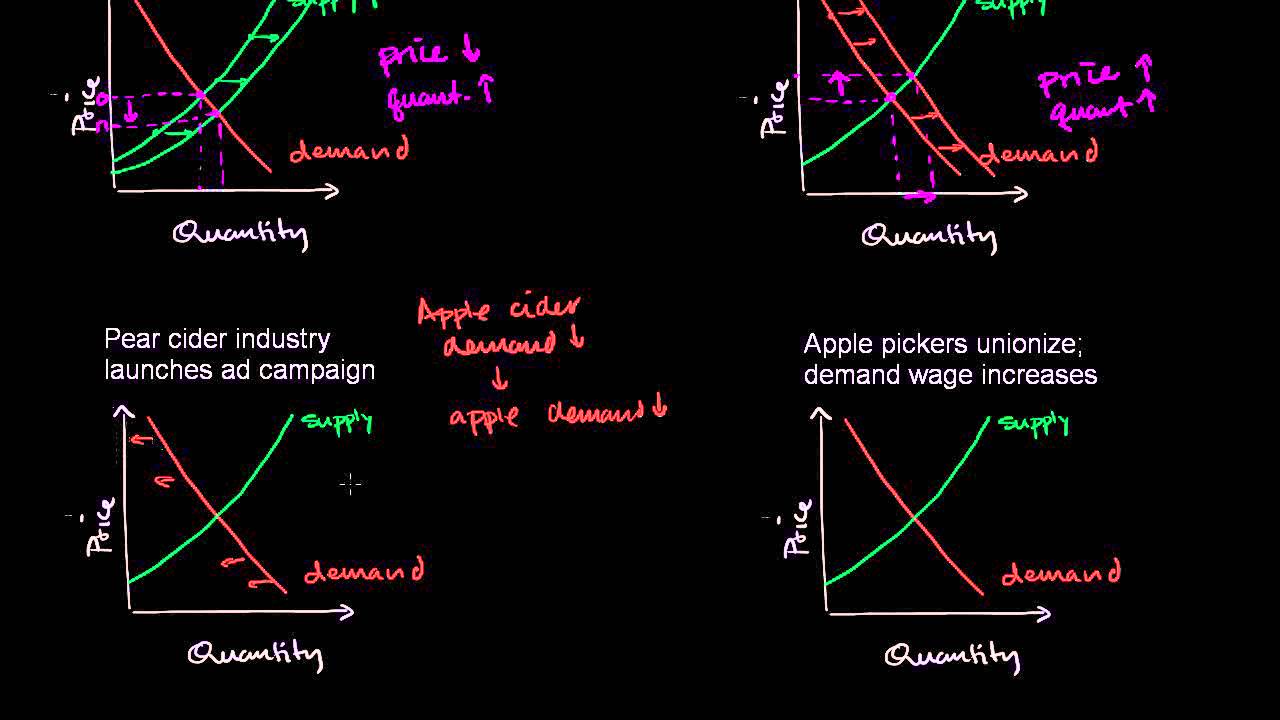 supply
price ↓
quant. ↑
Price
o
n
demand
Quantity
supply
price ↑
quant ↑
Price
demand
Quantity
Pear cider industry
launches ad campaign
Apple cider
demand ↓
↓
apple demand ↓
supply
Price
demand
Quantity
Apple pickers unionize;
demand wage increases
supply
Price
demand
Quantity